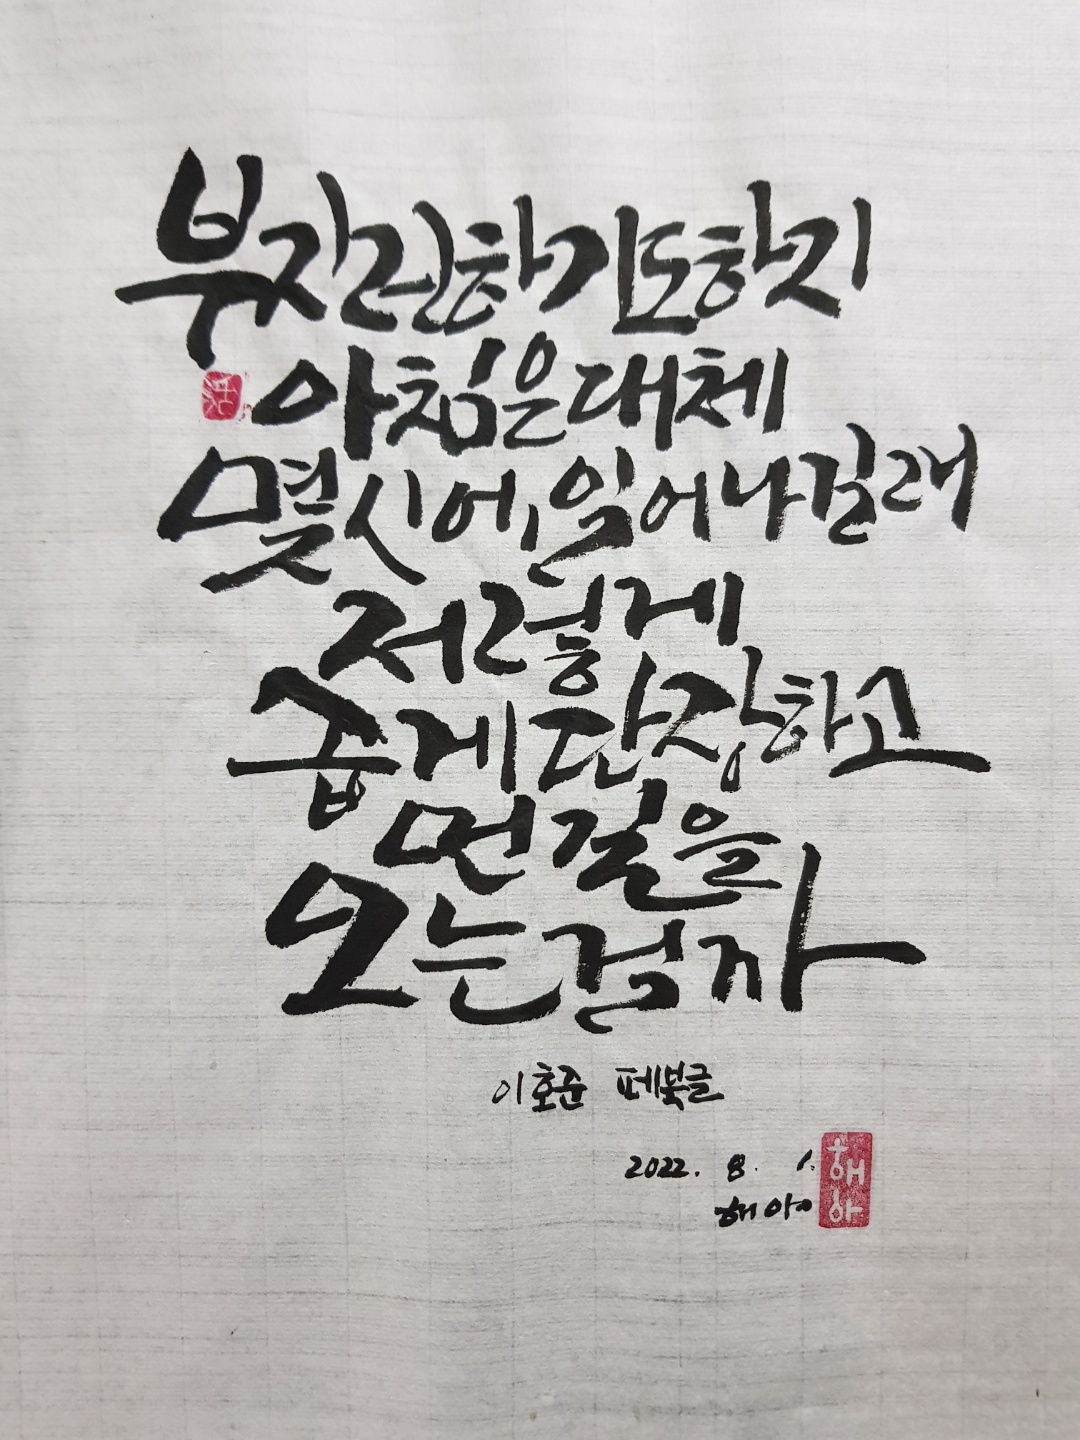 부지런하기도하지
아침은대체
몇시에, 일어나길래
저렇게
곱게단장하고
먼길을
오는걸까
이호준 페북글
2022. 8. 1.
해아
해아